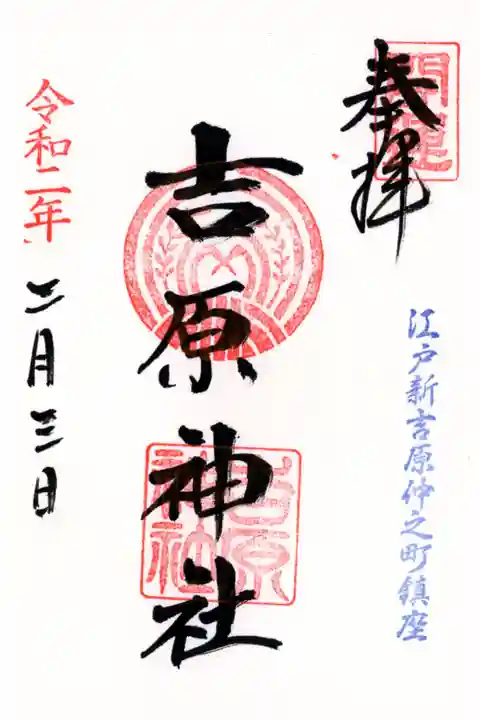 奉拝
開運
江戸新吉原仲之町鎮座
吉原神社
吉原神社
令和二年二月三日